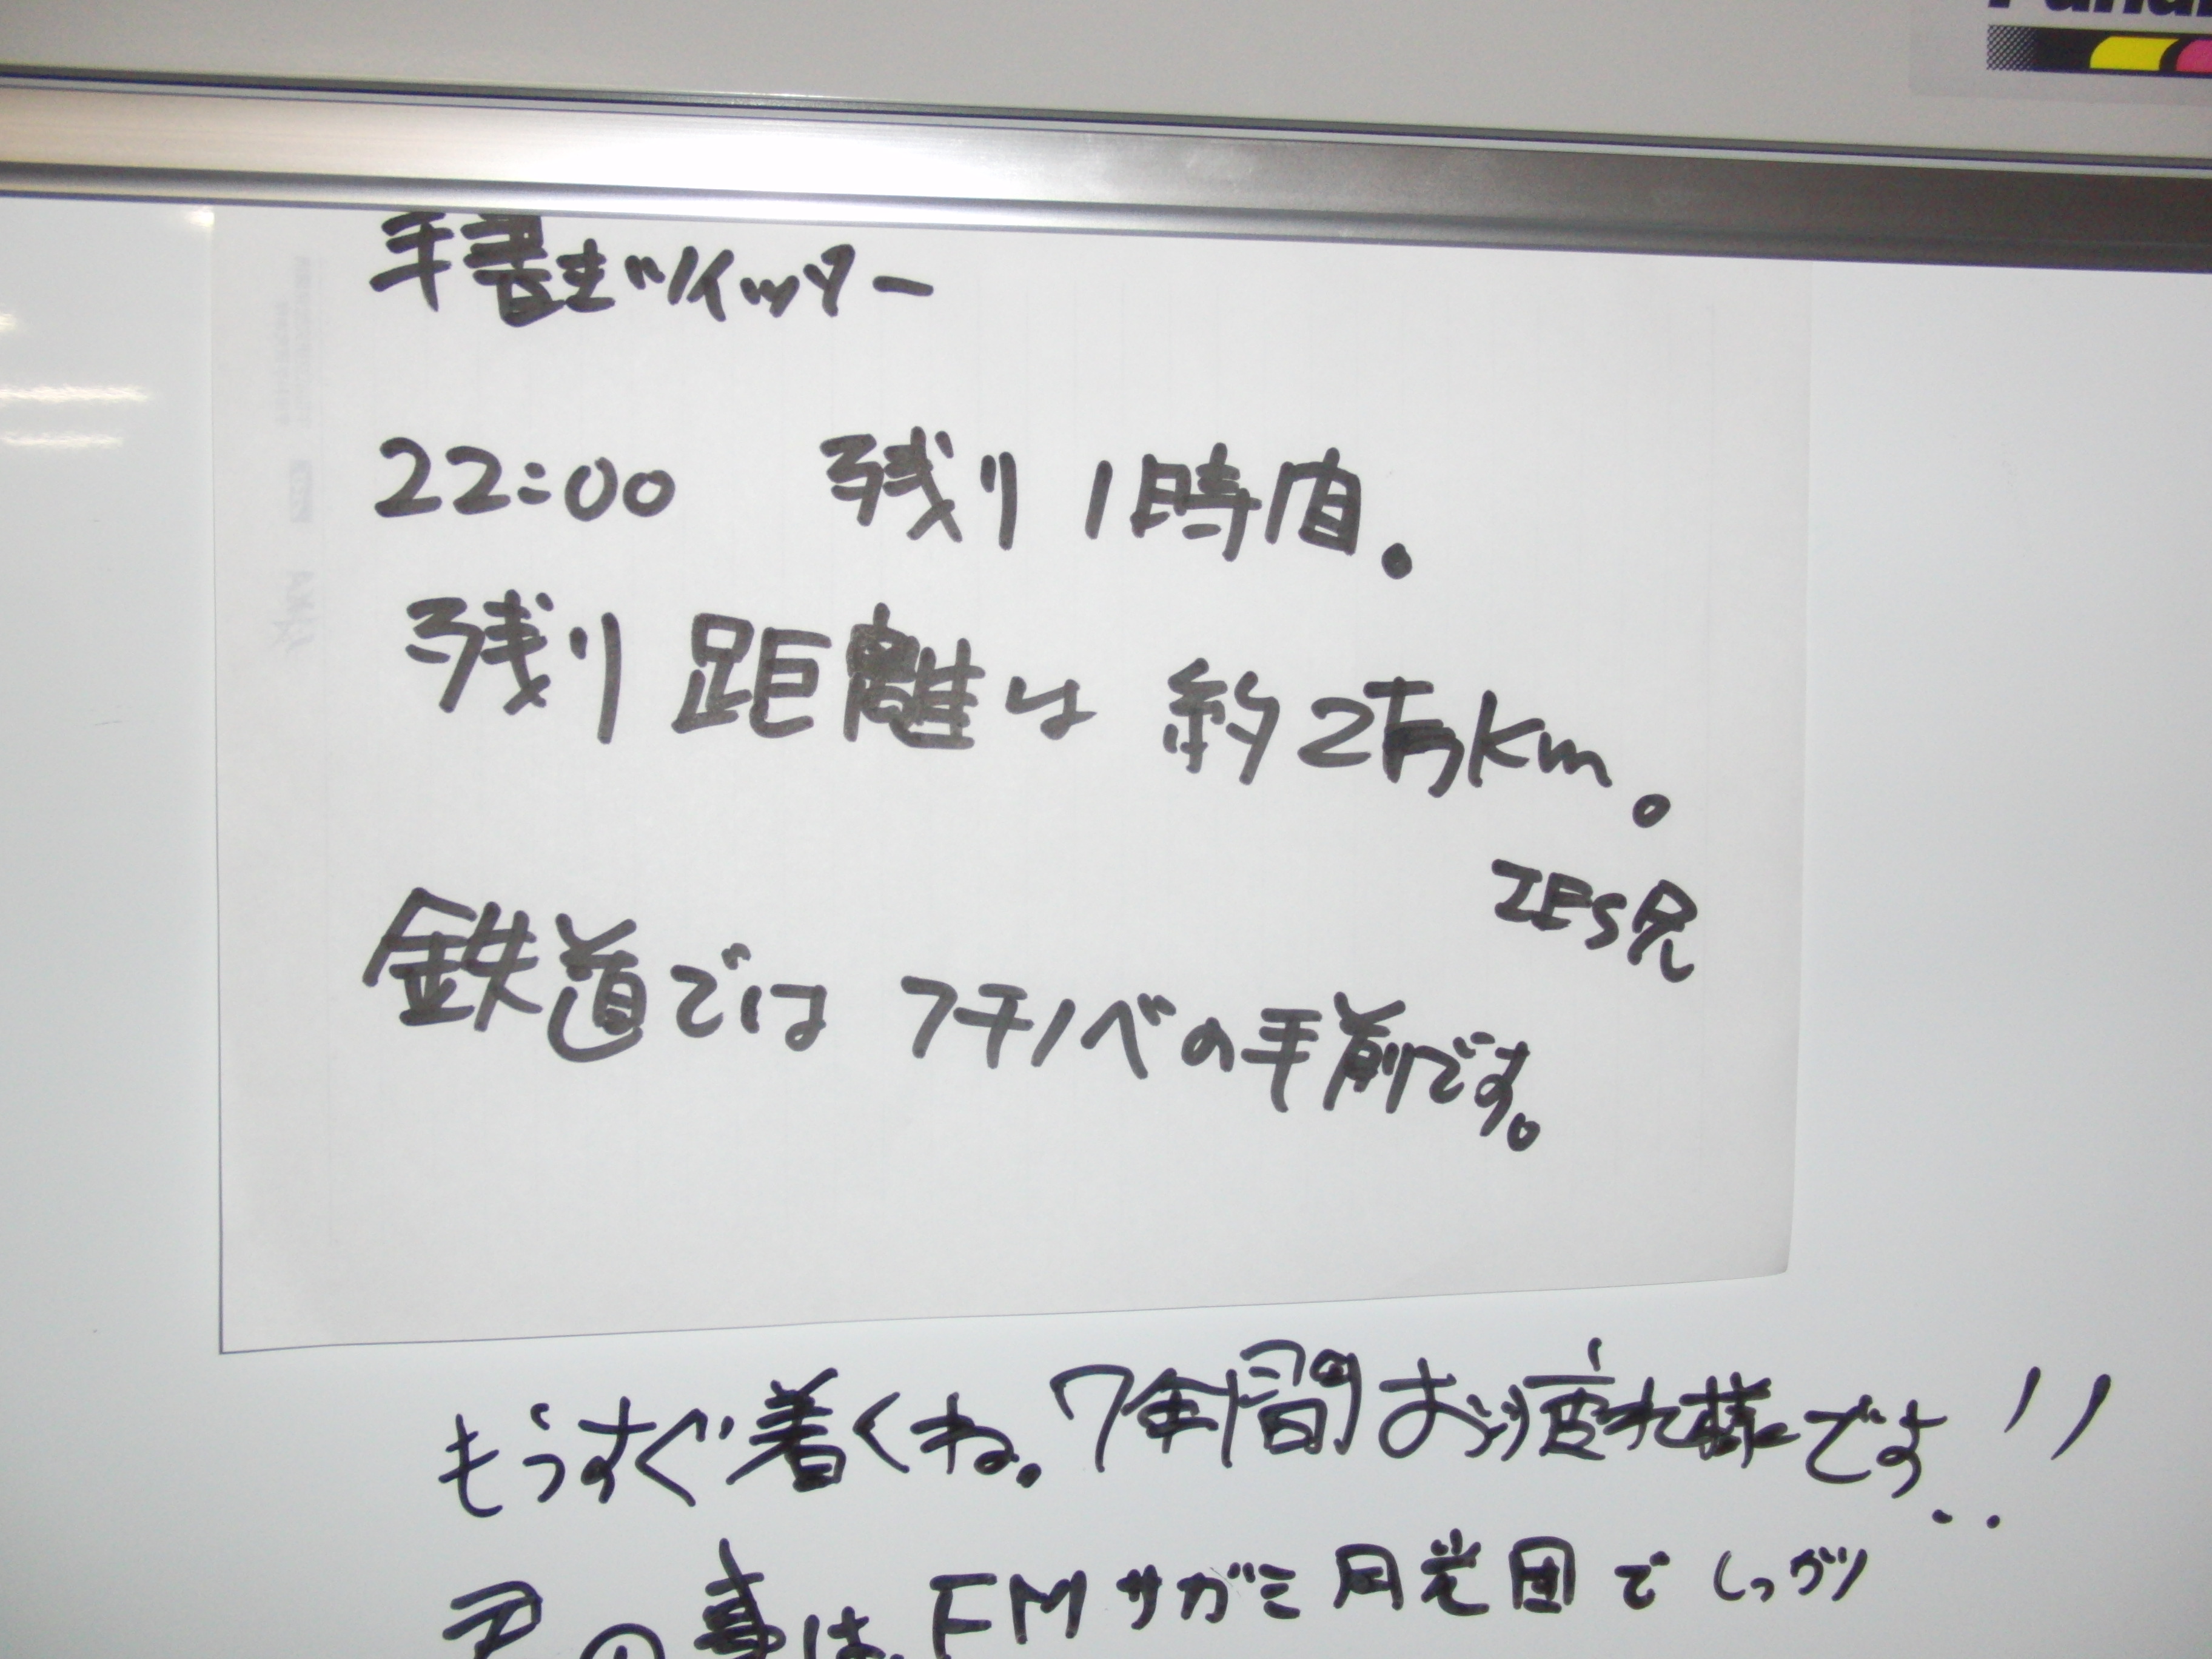 手書きツイッター
22:00 残り1時間.
残り距離は約2万km。
IES兄
鉄道ではフチノベの手前です。
もうすぐ着くね.7年間お疲れ様です!!
君の事は、FMサガミ月光団でしっかり